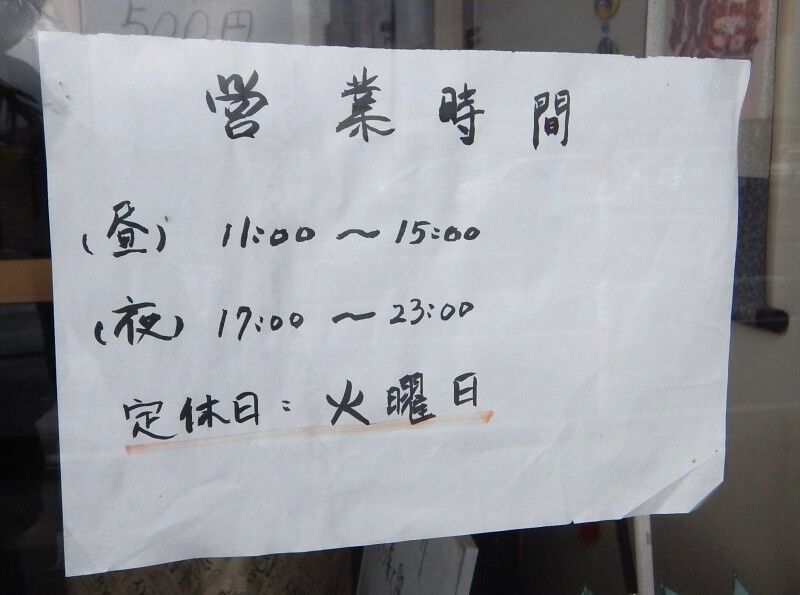 500円
営業時間
(昼) 11:00 ～ 15:00
(夜) 17:00 ～ 23:00
定休日: 火曜日